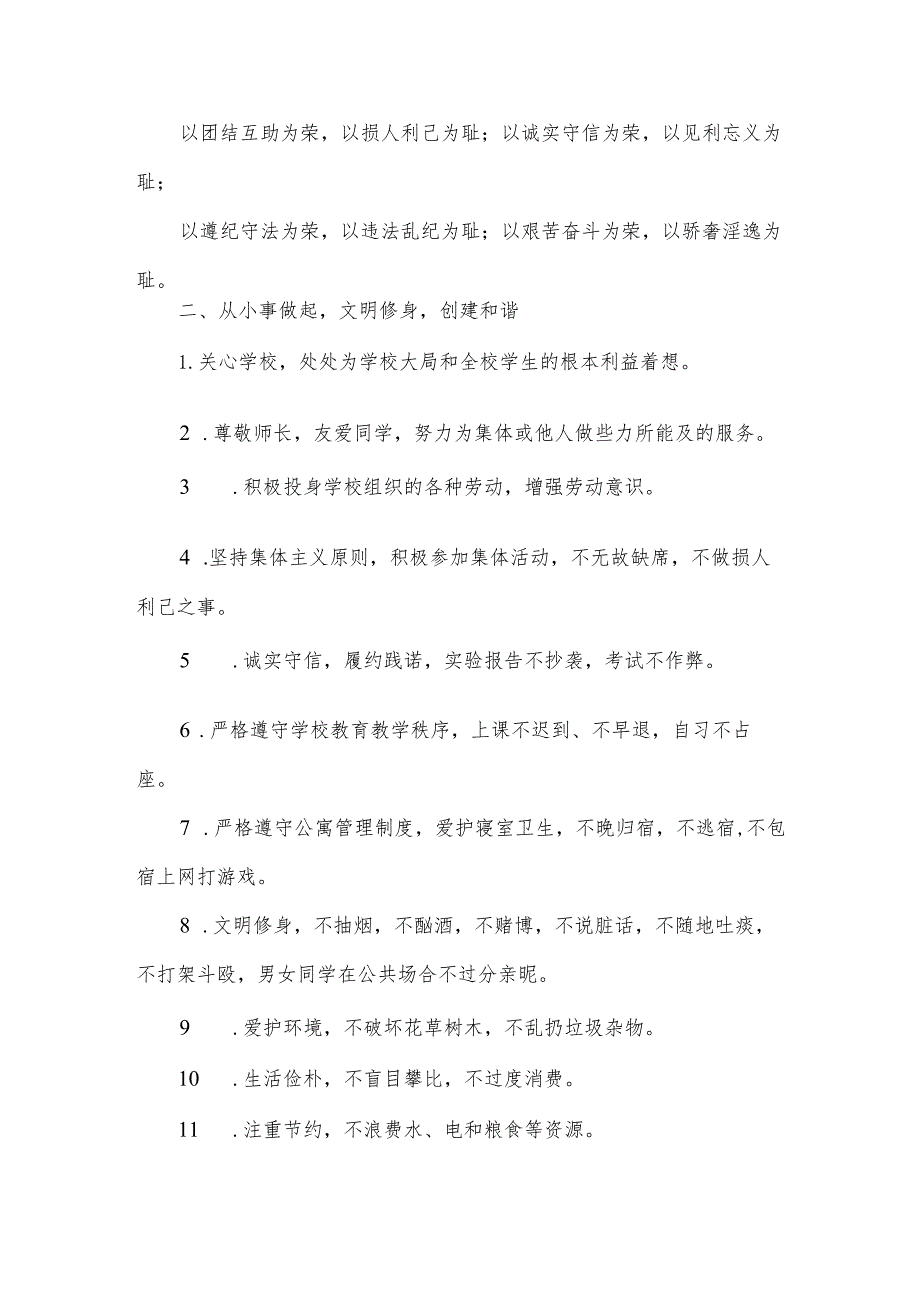 以团结互助为荣，以损人利己为耻；以诚实守信为荣，以见利忘义为
耻；
以遵纪守法为荣，以违法乱纪为耻；以艰苦奋斗为荣，以骄奢淫逸为
耻。
二、从小事做起，文明修身，创建和谐
1.关心学校，处处为学校大局和全校学生的根本利益着想。
2 .尊敬师长，友爱同学，努力为集体或他人做些力所能及的服务。
3 .积极投身学校组织的各种劳动，增强劳动意识。
4 .坚持集体主义原则，积极参加集体活动，不无故缺席，不做损人
利己之事。
5 .诚实守信，履约践诺，实验报告不抄袭，考试不作弊。
6 .严格遵守学校教育教学秩序，上课不迟到、不早退，自习不占
座。
7 .严格遵守公寓管理制度，爱护寝室卫生，不晚归宿，不逃宿,不包
宿上网打游戏。
8 .文明修身，不抽烟，不酗酒，不赌博，不说脏话，不随地吐痰，
不打架斗殴，男女同学在公共场合不过分亲昵。
9 .爱护环境，不破坏花草树木，不乱扔垃圾杂物。
10 .生活俭朴，不盲目攀比，不过度消费。
11 .注重节约，不浪费水、电和粮食等资源。